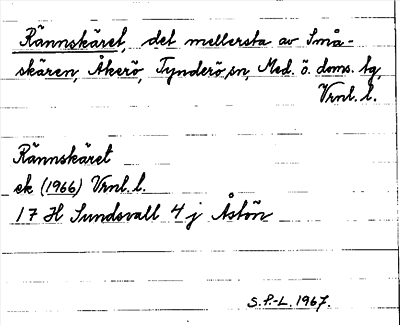 Rännskäret, det mellersta av Små-
skären, Åkerö, Tynderö sn, Med. ö. doms. tg,
Vrnl. l.
Rännskäret
ek (1966) Vrnl. l.
17 H Sundsvall 4 j Åstön
S.P.-L. 1967.